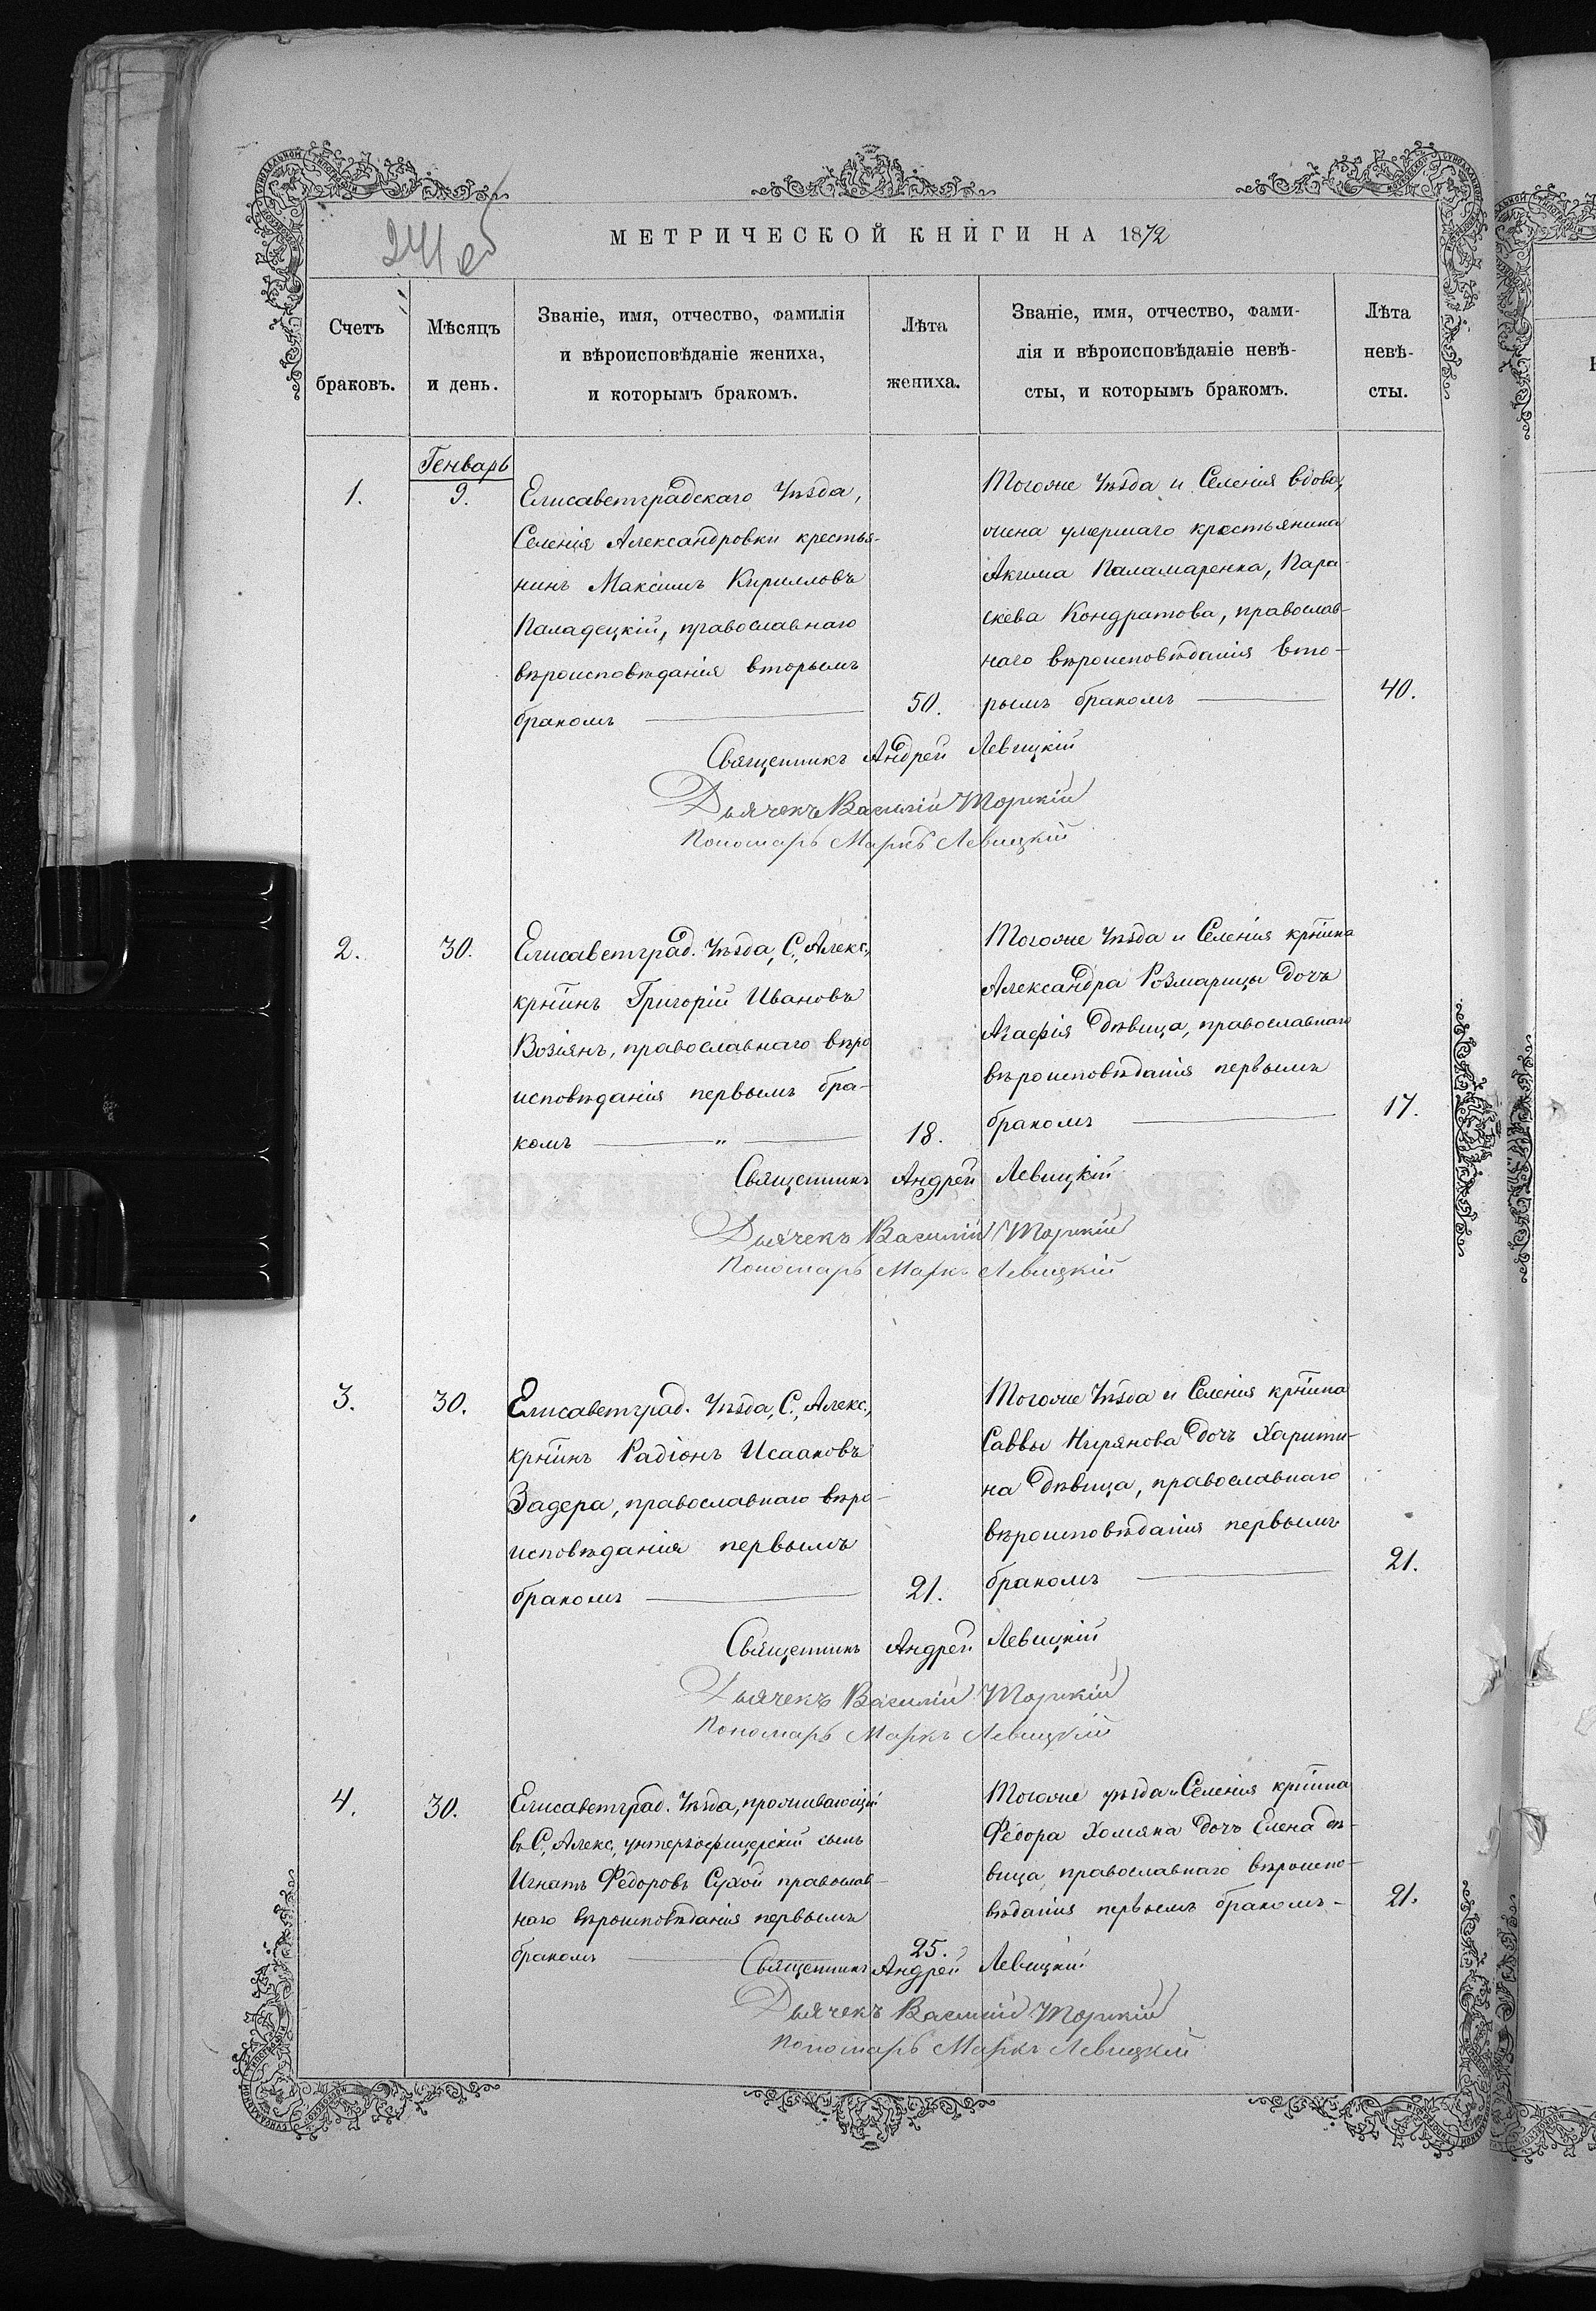 241 об
МЕТРИЧЕСКОЙ КНИГИ НА 1872
Счетъ
браковъ.
Мѣсяцъ
и день.
Званіе, имя, отчество, фамилія
и вѣроисповѣданіе жениха,
и которымъ бракомъ.
Лѣта
жениха.
Званіе, имя, отчество, фами-
лія и вѣроисповѣданіе невѣ-
сты, и которымъ бракомъ.
Лѣта
невѣ-
сты.
Генварь
1.
9.
Елисаветградскаго Уѣзда,
Селенія Александровки крестья-
нинъ Максимъ Кирилловъ
Паладецкій, православнаго
вѣроисповѣданія вторымъ
бракомъ
50.
Тогоже Уѣзда и Селенія вдова,
жена умершаго крестьянина
Акима Паламаренка, Пара-
скева Кондратова, православ-
наго вѣроисповѣданія вто-
рымъ бракомъ
40.
Священникъ Андрей Левицкій
Дьячекъ Василій Торскій
Пономарь Маркъ Левицкій
2.
30.
Елисаветград. Уѣзда, С., Алекс.,
кр͞нинъ Григорій Ивановъ
Возіянъ, православнаго вѣро
исповѣданія первымъ бра-
комъ "
18.
Тогоже Уѣзда и Селенія кр͞нина
Александра Розмарицы дочь
Агафія дѣвица, православнаго
вѣроисповѣданія первымъ
бракомъ
17.
Священникъ Андрей Левицкій
Дьячекъ Василій Торскій
Пономарь Маркъ Левицкій
3.
30.
Елисаветград. Уѣзда, С., Алекс.,
кр͞нинъ Радіонъ Исааковъ
Задера, православнаго вѣро-
исповѣданія первымъ
бракомъ
21.
Тогоже Уѣзда и Селенія кр͞нина
Саввы Нирянова дочь Харити-
на дѣвица, православнаго
вѣроисповѣданія первымъ
бракомъ
21.
Священникъ Андрей Левицкій
Дьячекъ Василій Торскій
Пономарь Маркъ Левицкій
4.
30.
Елисаветград. Уѣзда, проживающій
въ С., Алекс., унтеръофицерскій сынъ
Игнатъ Федоровъ Сухой православ-
наго вѣроисповѣданія первымъ
бракомъ
25.
Тогоже уѣзда и Селенія кр͞нина
Федора Хомяка дочь Елена дѣ-
вица, православнаго вѣроиспо-
вѣданія первымъ бракомъ-
21.
Священникъ Андрей Левицкій
Дьячекъ Василій Торскій
Пономарь Маркъ Левицкій